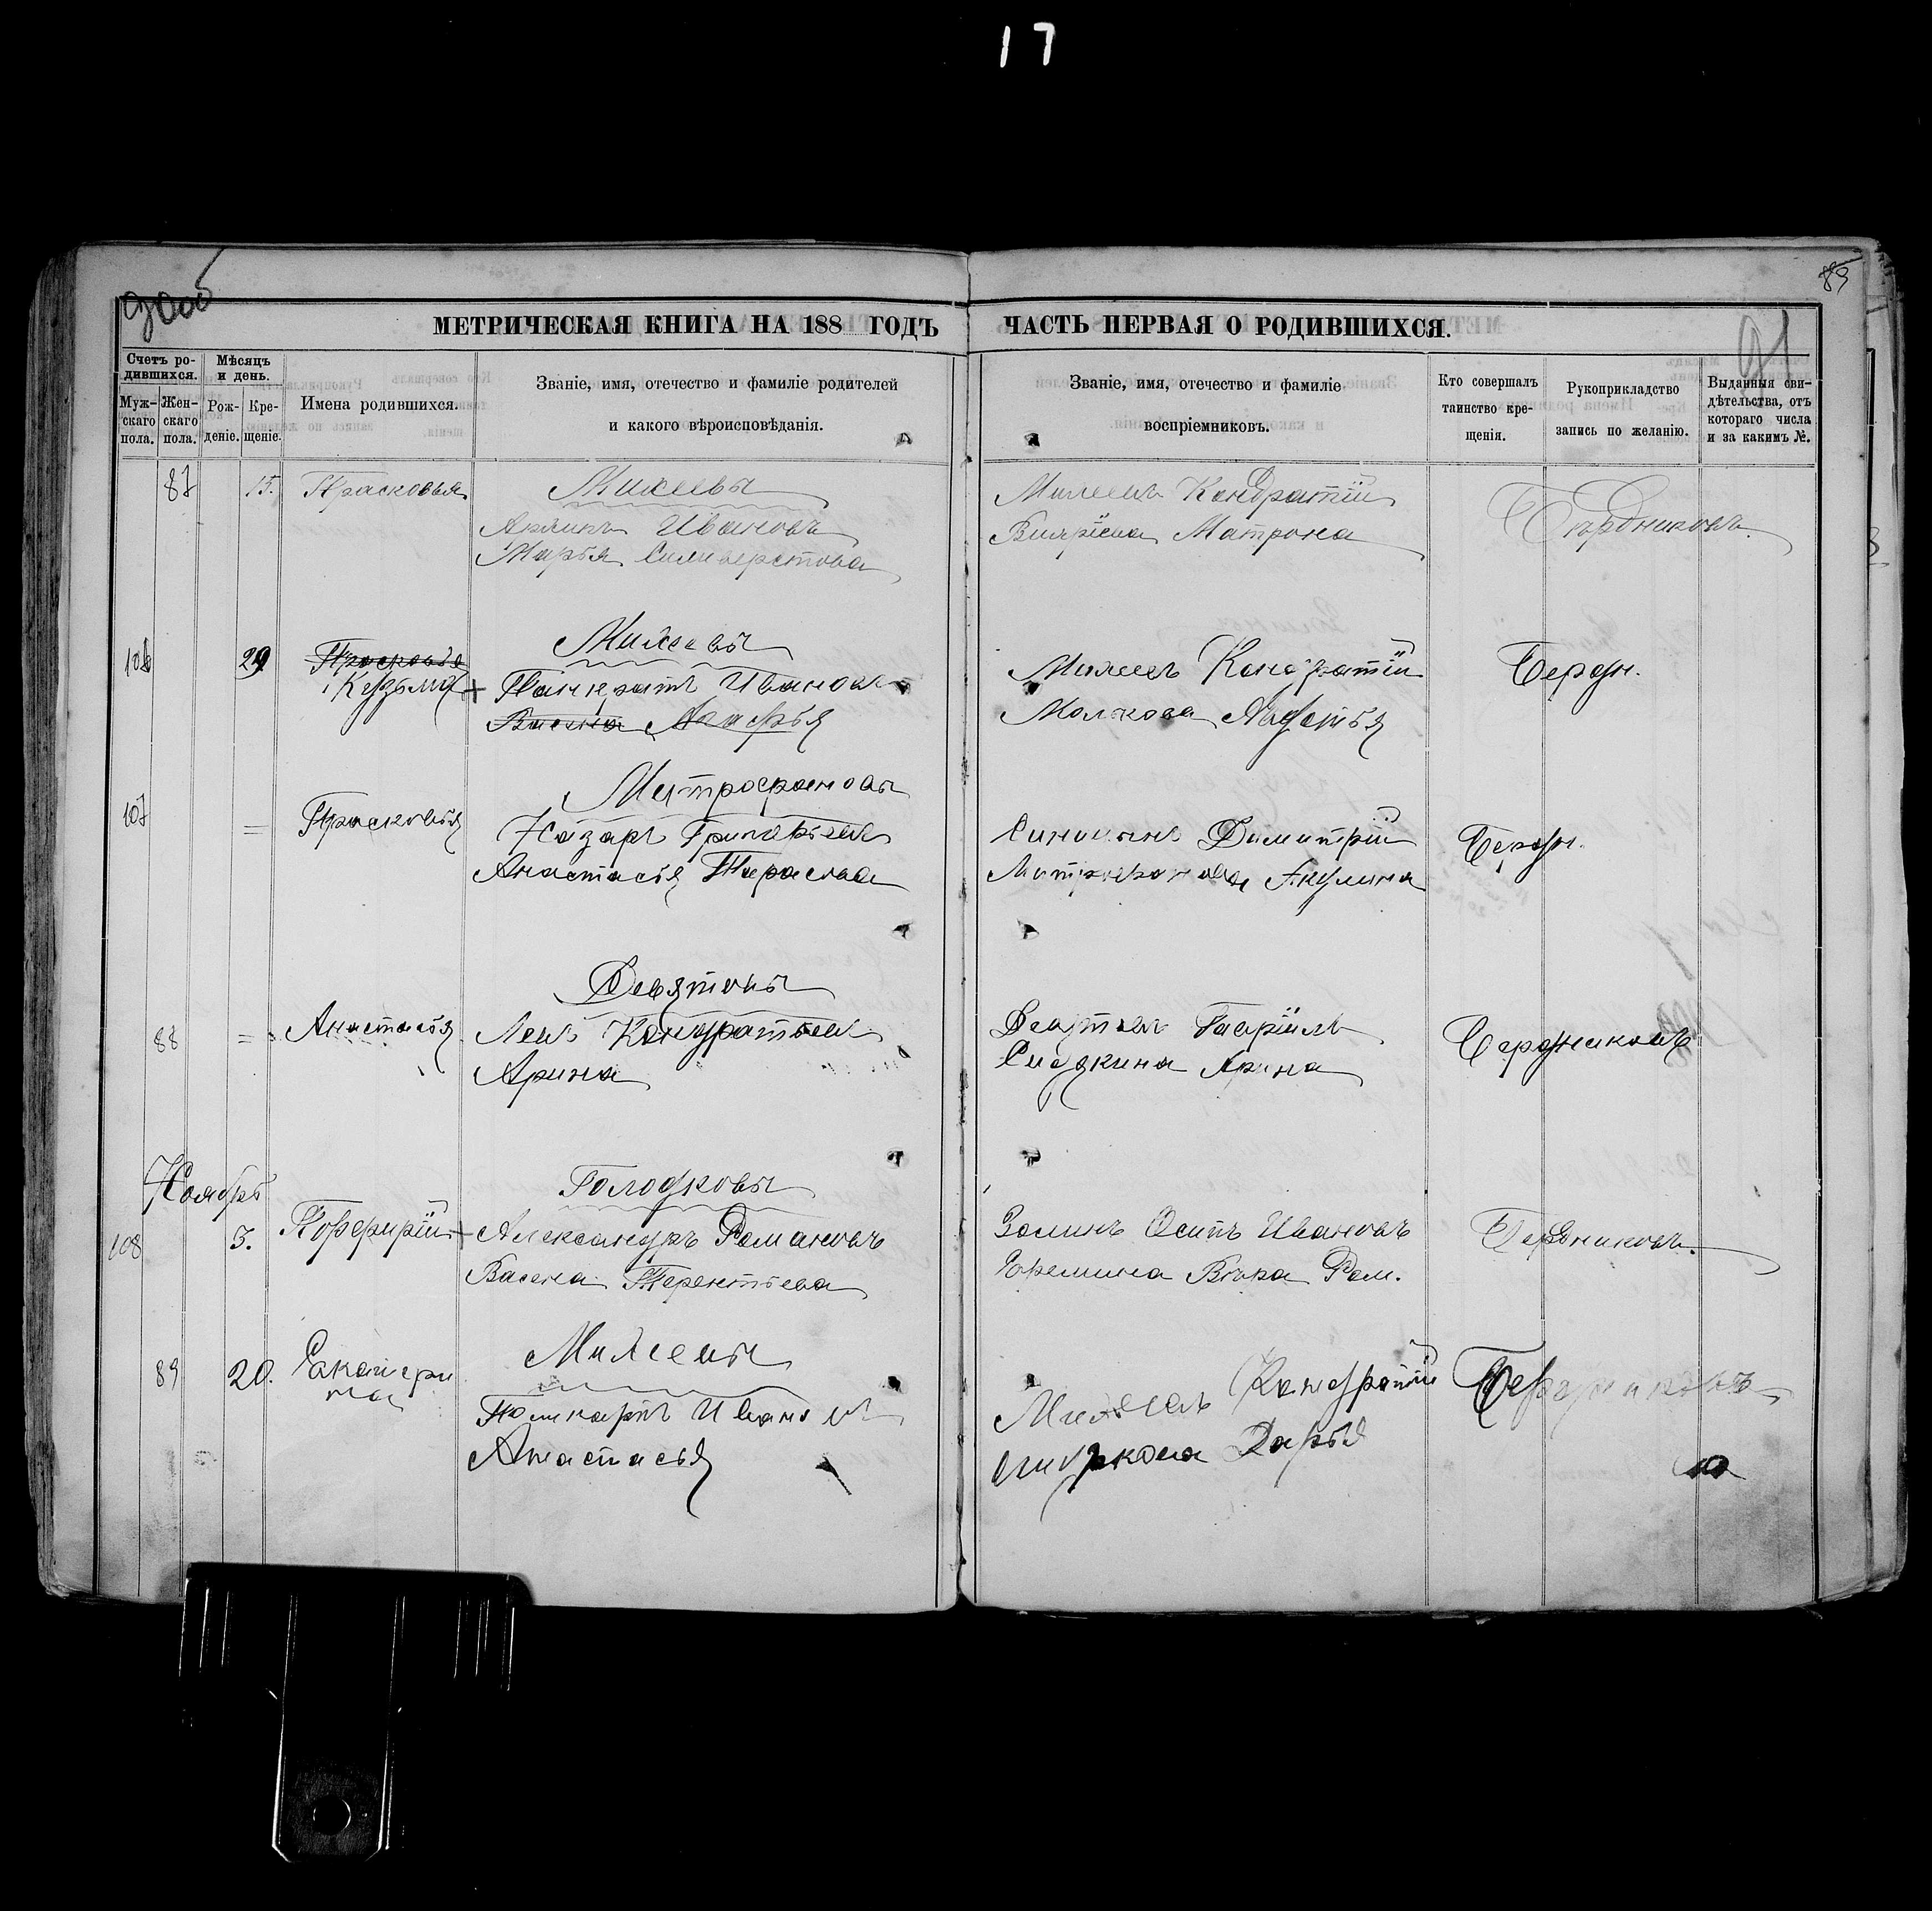 17
90об
89
91
МЕТРИЧЕСКАЯ КНИГА НА 188 ГОДЪ
ЧАСТЬ ПЕРВАЯ О РОДИВШИХСЯ.
Счетъ родившихся.
Мужскаго пола.
Женскаго пола.
Мѣсяцъ и день.
Рожденіе.
Крещеніе.
Имена родившихся.
Званіе, имя, отечество и фамиліе родителей
и какого вѣроисповѣданія.
Званіе, имя, отечество и фамиліе
воспріемниковъ.
Кто совершалъ таинство крещенія.
Рукоприкладство
запись по желанію.
Выданныя свидѣтельства, отъ котораго числа и за какимъ №.
87 15. Прасковья Михеевы
Ивановъ
Марья Силиверстова
Михеевъ Кондратій
Матрона
Бердниковъ
106 29 Прасковья Михеевы
Кузьма + Панкратъ Ивановъ
Михеевъ Кондратій
Молкова
Бердн.
107 = Прасковья Митрофановы
Назаръ Григорьевъ
Анастасья Тарасова
Димитрій
Митрофанова Акулина
Бердн.
88 = Анастасья Девятовы
Левъ Кондратьевъ
Арина
Девятовъ Гавріилъ
Арина
Бердниковъ
Ноябрь
108 5. Порфирій + Голодковы
Александръ Романовъ
Васена Терентьева
Зоминъ Осипъ Ивановъ
Еремина Вѣра Ром.
Бердниковъ
89 20. Екатерина Михеевы
Поликарпъ Ивановъ
Анастасья
Михеевъ Кондратій
Дарья
Бердниковъ